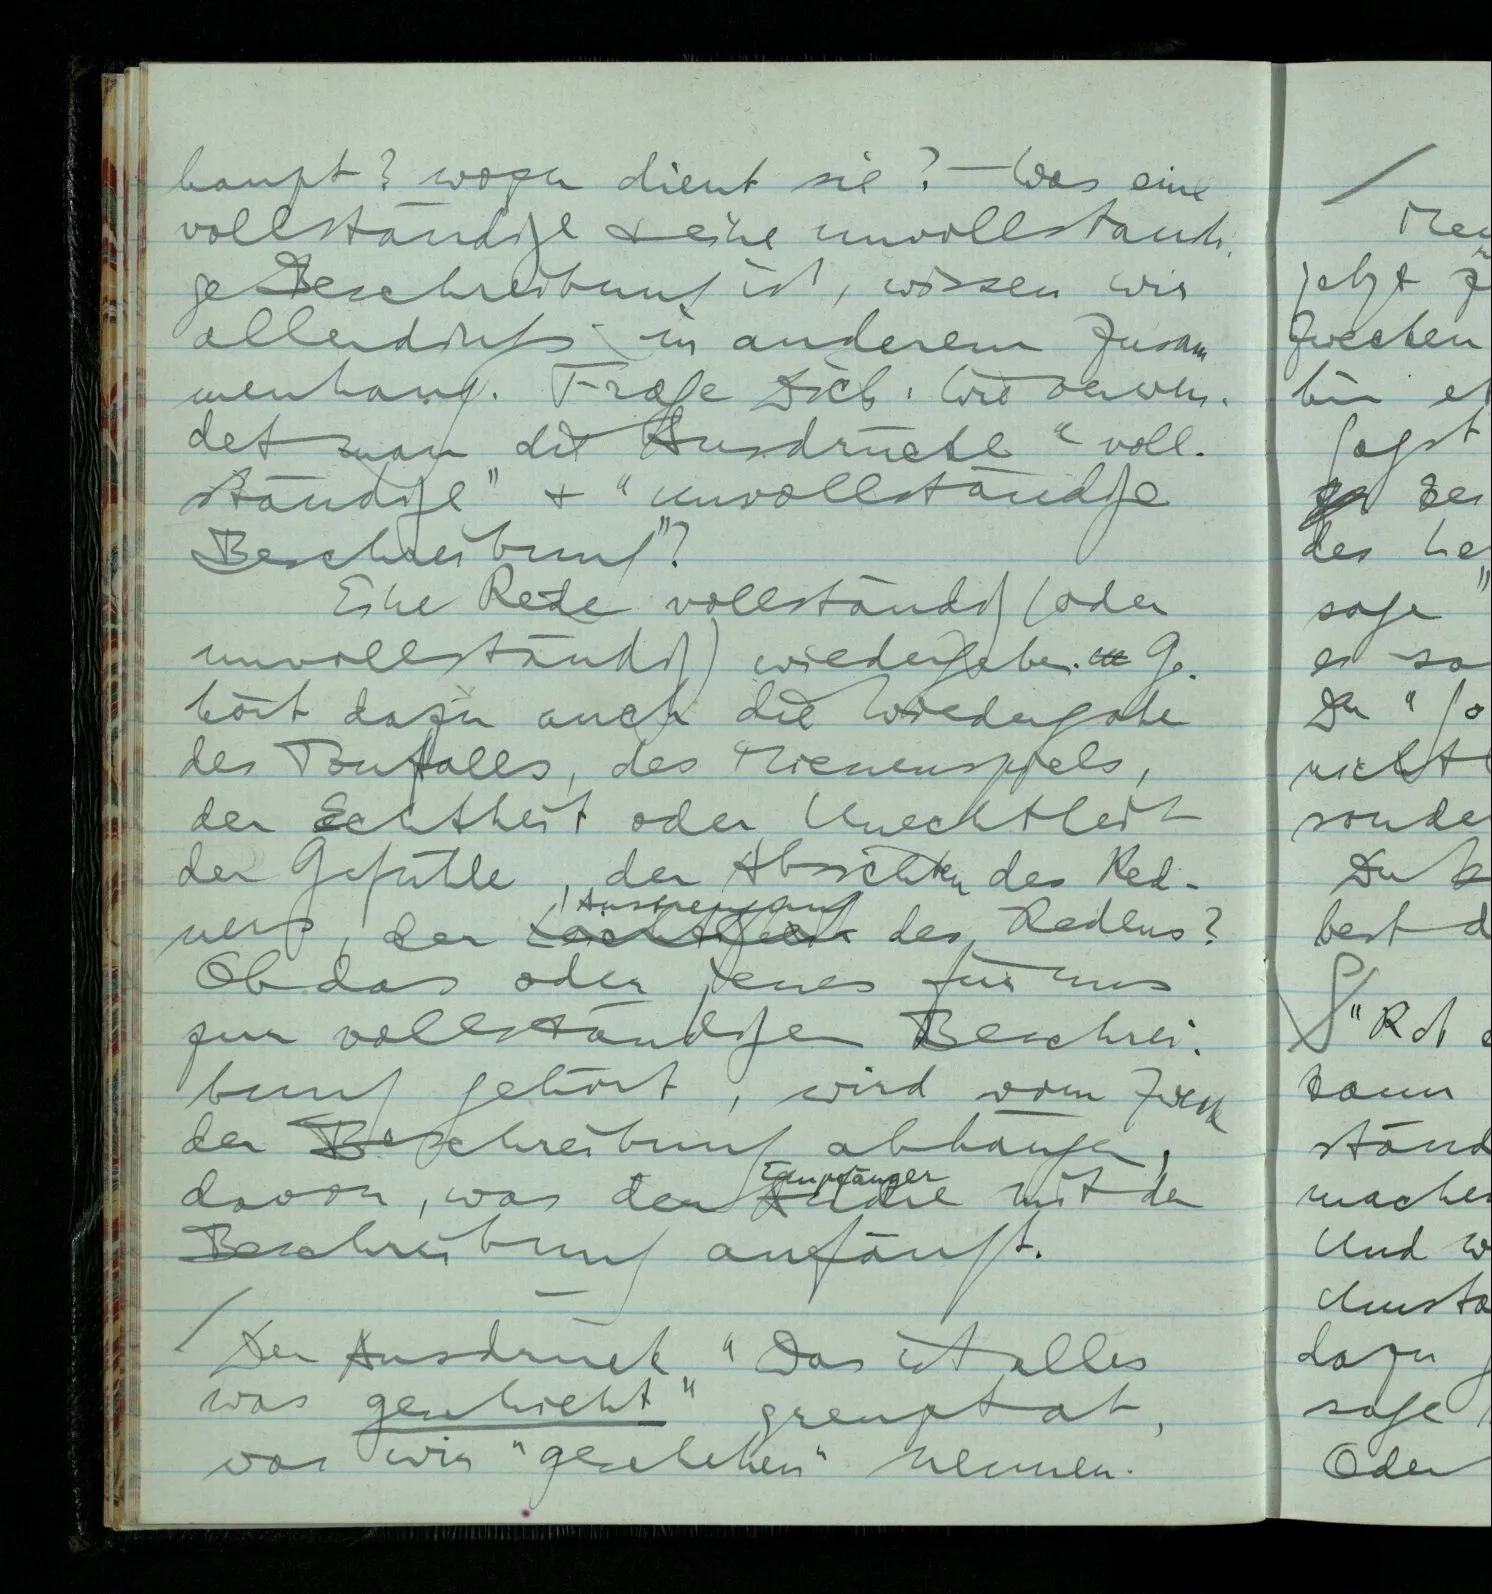 haupt? wozu dient sie? — Was eine
vollständige & eine unvollständi-
ge Beschreibung ist, wissen wir
allerdings in anderem Zusam
menhang. Frage Dich: Wie verwen-
det man die Ausdrücke "voll-
ständige" & "unvollständige
Beschreibung"?
Eine Rede vollständig (oder
unvollständig) wiedergeben. Ge-
hört dazu auch die Wiedergabe
des Tonfalls, des Mienenspiels,
der Echtheit oder Unechtheit
der Gefühle, der Absichten des Red-
ners, der Leichtigkeit des Redens?
Anstrengung
Ob das oder jenes für uns
zur vollständigen Beschrei-
bung gehört, wird vom Zweck
der Beschreibung abhängen,
davon, was der Andre mit der
Empfänger
Beschreibung anfängt.
Der Ausdruck "Das ist alles
was geschieht" grenzt ab,
was wir "geschehen" nennen.
jetzt
Zwecken
bin
sagst
des
sage
es
Du
nicht
Du
best
"Rot
kann
ständ
machen
Und
dazu
sage
Oder